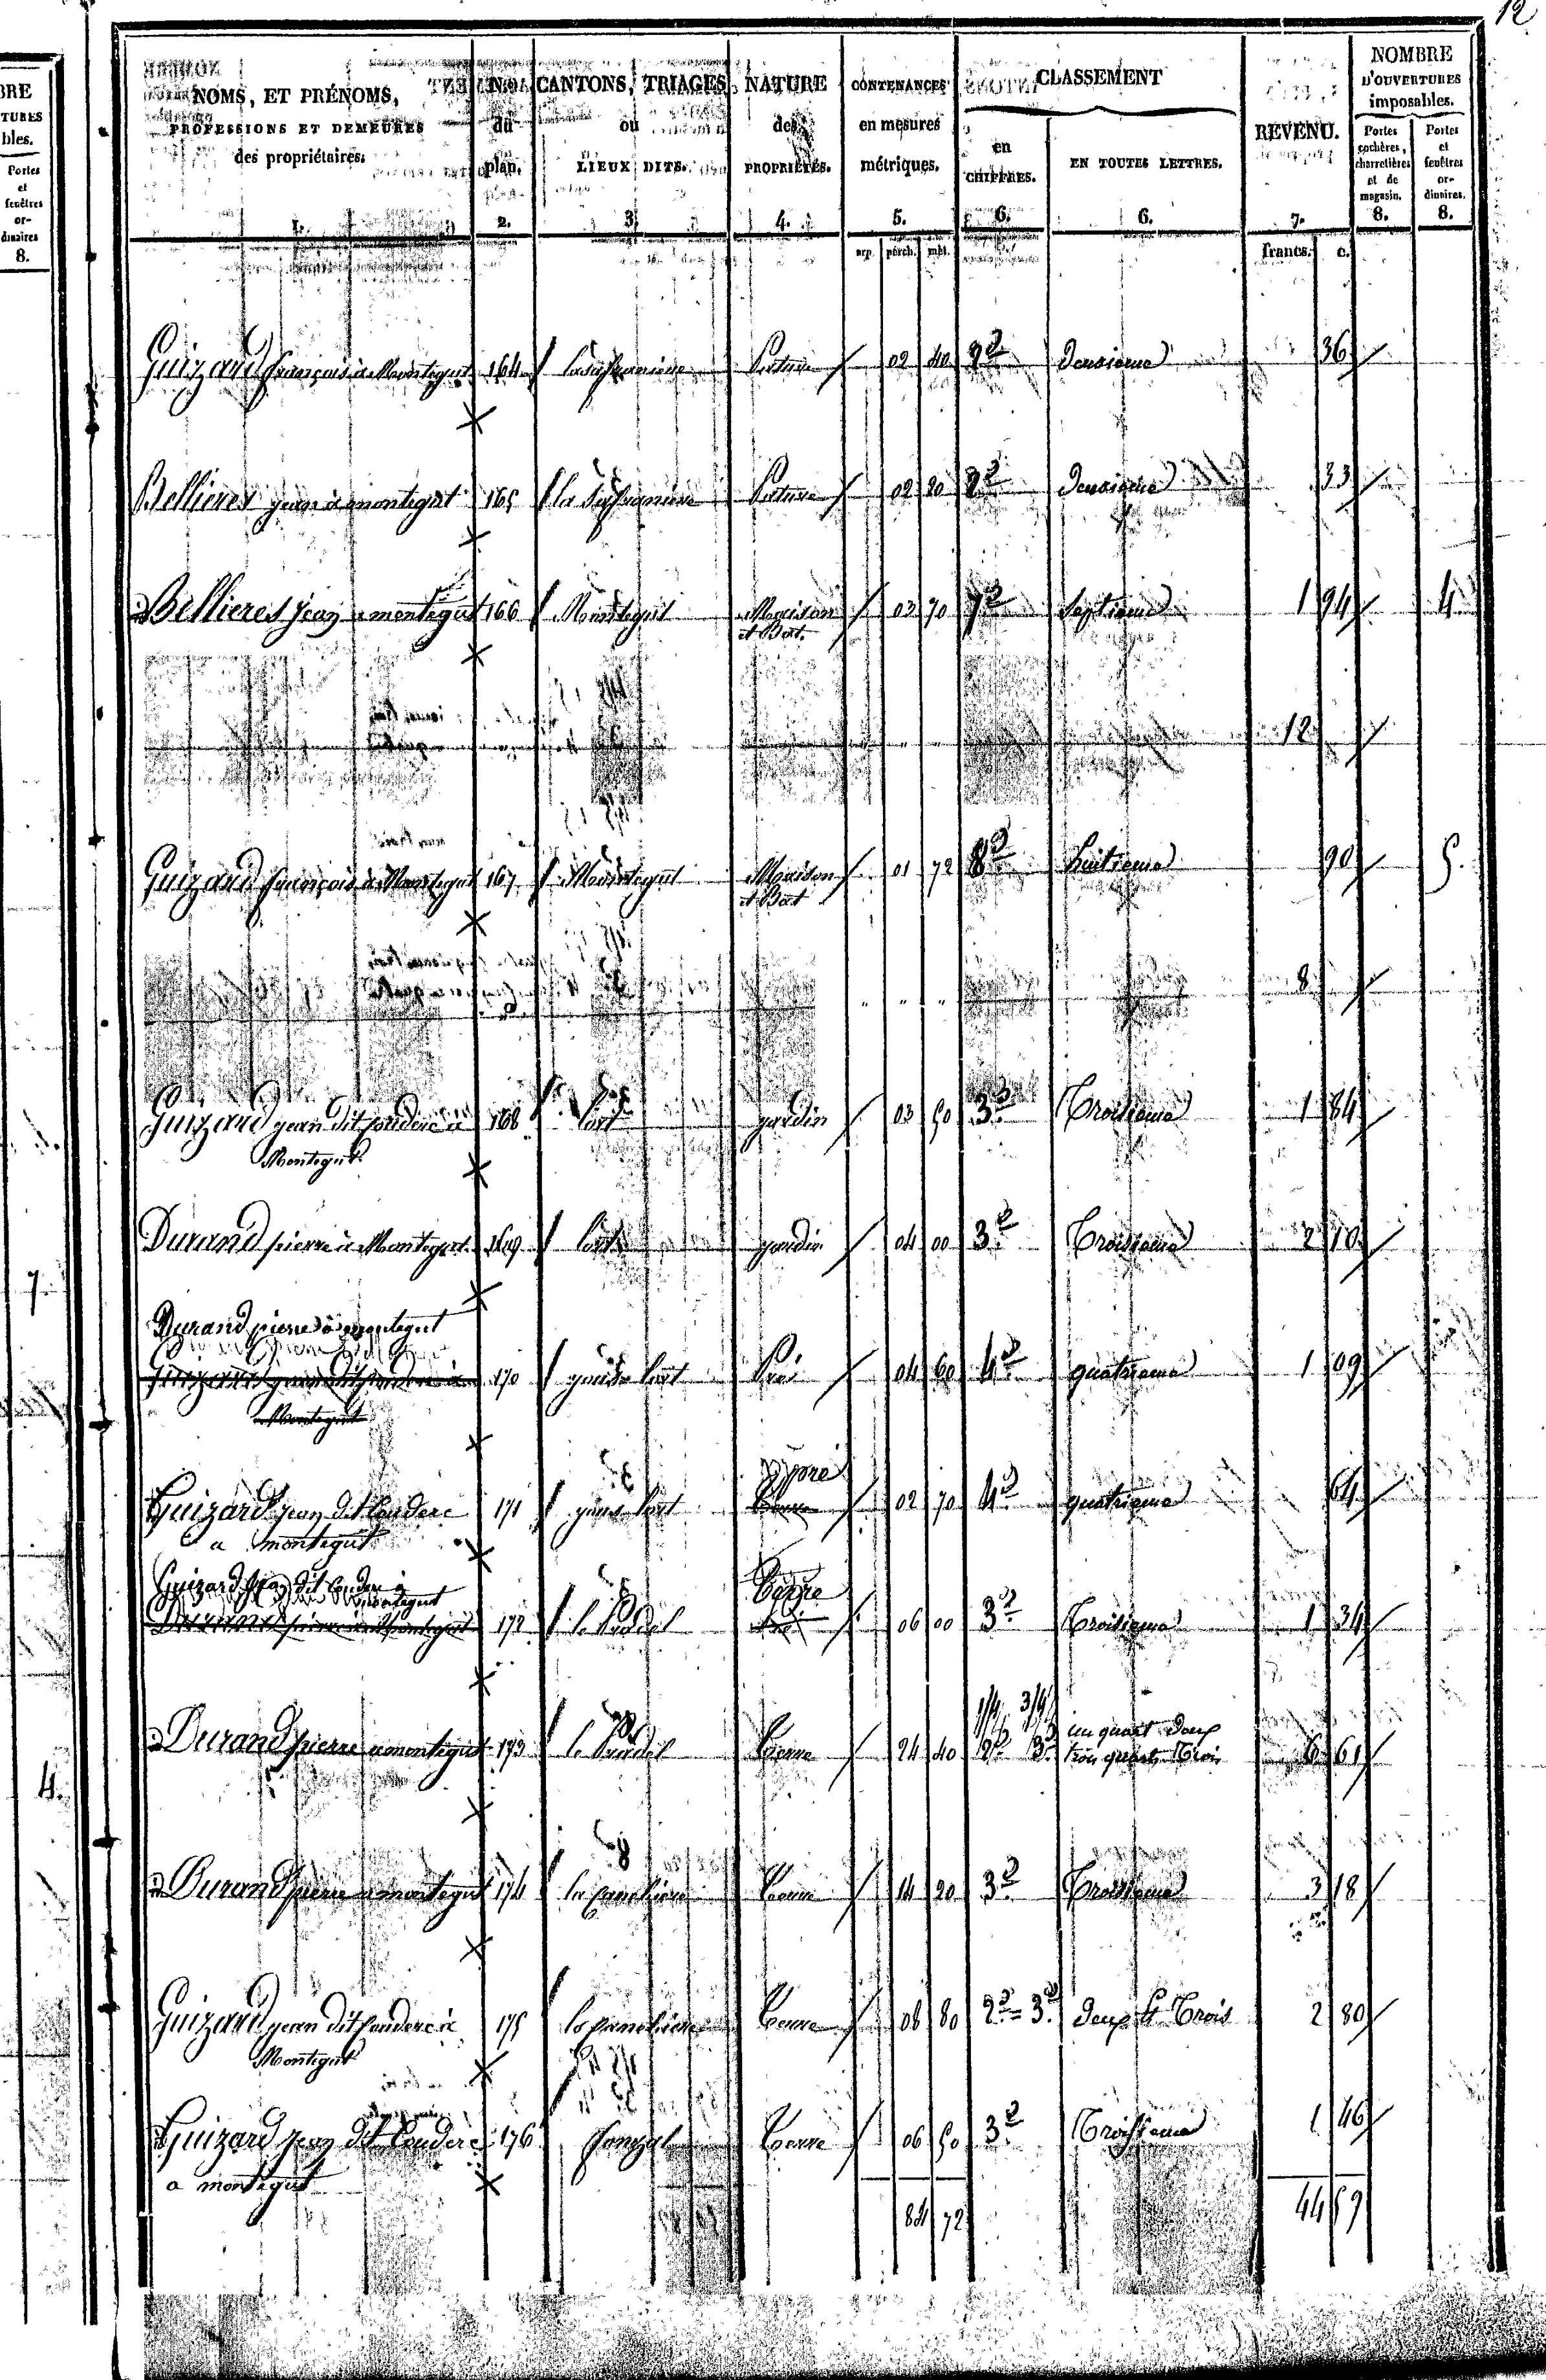 12
BRE
TURES
bles.
Portes
et
fenêtres
or-
dinaires
8.
7.
4.
NOMS, ET PRÉNOMS,
PROFESSIONS ET DEMEURES
des propriétaires.
1.
N.os
du
plan.
2.
CANTONS, TRIAGES
ou
LIEUX DITS.
3.
NATURE
des
PROPRIÉTÉS.
4.
CONTENANCES
en mesures
métriques.
5.
arp. perch. mèt.
CLASSEMENT
en
CHIFFRES.
6.
EN TOUTES LETTRES.
6.
REVENU.
7.
francs. c.
NOMBRE
D'OUVERTURES
imposables.
Portes
cochères,
charretières
et de
magasin.
8.
Portes
et
fenêtres
or-
dinaires.
8.
Guizard françois à Montegut 164 Pature 02 40 2e Deuxieme 36
Bellieres jean à montegut 165 la Safraniere Pature 02 20 2e Deuxieme 33
Bellieres Jean a montegut 166 Montegut Maison 03 70 7e Septieme 1 94 4
et Bat.
12
Guizard françois à Montegut 167 Montegut Maison 01 72 8e huitieme 90 5.
et Bat
8
Guizard jean dit Couderc à 168 lort jardin 03 50 3e Troisieme 1 84
Montegut
Durand pierre à Montegut 169 lort jardin 04 00 3e Troisieme 2 10
Durand pierre à montegut
Guizard jean dit Couderc à 170 lort Pré 04 60 4e quatrieme 1 09
Montegut
pré
Guizard Jean dit Couderc 171 lort Terre 02 70 4e quatrieme 64
a montegut
Guizard Jean dit Couderc à montegut
Terre
Durand pierre à Montegut 172 le Pradel 06 00 3e Troisieme 1 34
1/4 3/4 un quart Deux
Durand pierre a montegut 173 le Pradel Terre 24 40 2e 3e trois quarts Trois 6 61
Durand pierre a montegut 174 Terre 14 20 3e Troisieme 3 18
Guizard jean dit Couderc à 175 Terre 08 80 2e = 3e Deux & Trois 2 80
Montegut
Guizard Jean dit Couderc 176 Terre 06 50 3e Troisieme 1 46
a montegut
84 72 44 59